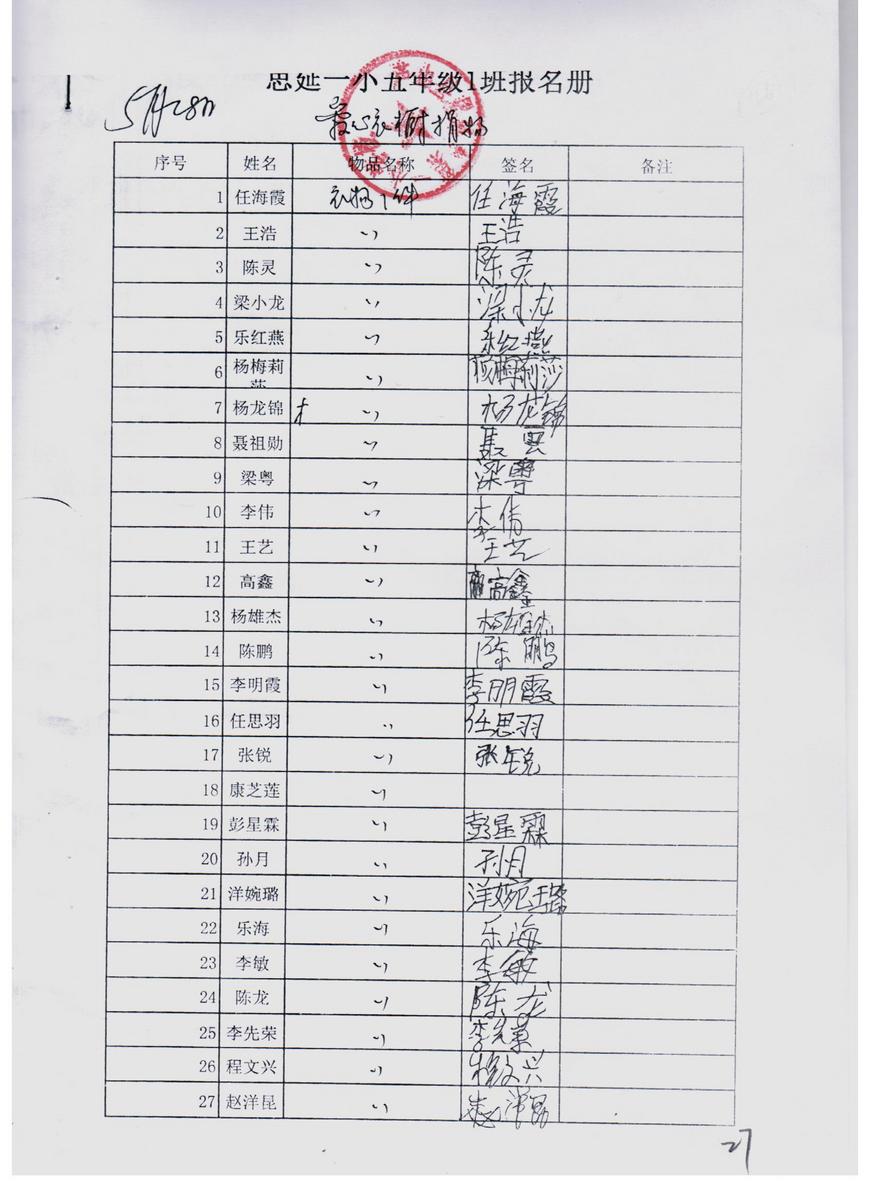 思延一小五年级1班报名册
5月28日
爱心衣橱捐物
序号 姓名 物品名称 签名 备注
1 任海霞 衣物1件 任海霞
2 王浩 〃 王浩
3 陈灵 〃 陈灵
4 梁小龙 〃 梁小龙
5 乐红燕 〃 乐红燕
6 杨梅莉莎 〃 杨梅莉莎
7 杨龙锦 〃 杨龙锦
8 聂祖勋 〃 聂
9 梁粤 〃 梁粤
10 李伟 〃 李倩
11 王艺 〃 王艺
12 高鑫 〃 高鑫
13 杨雄杰 〃 杨雄杰
14 陈鹏 〃 陈鹏
15 李明霞 〃 李明霞
16 任思羽 〃 任思羽
17 张锐 〃 张锐
18 康芝莲 〃
19 彭星霖 〃 彭星霖
20 孙月 〃 孙月
21 洋婉璐 〃 洋婉璐
22 乐海 〃 乐海
23 李敏 〃 李敏
24 陈龙 〃 陈龙
25 李先荣 〃 李先
26 程文兴 〃 程文兴
27 赵洋昆 〃 赵洋昆
27